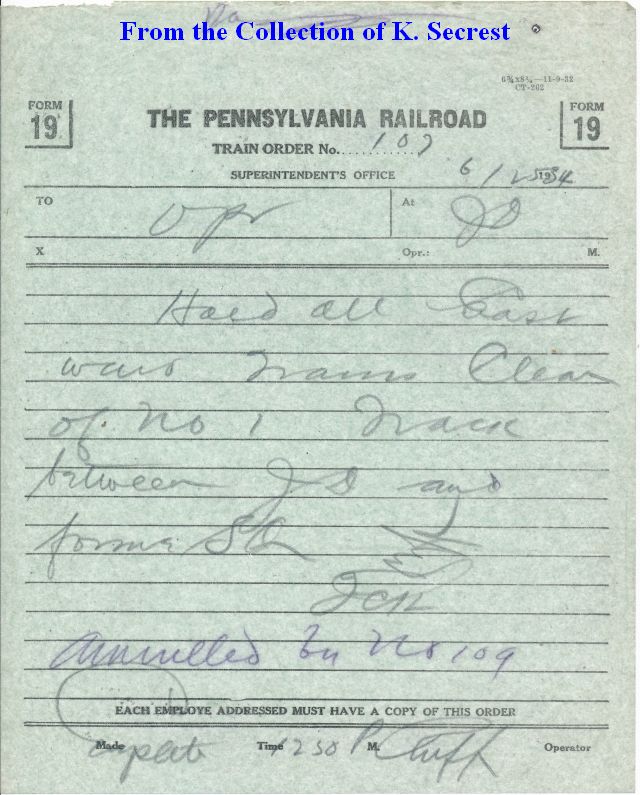 From the Collection of K. Secrest
6¾x8¼—11-9-32
CT-202
FORM
19
THE PENNSYLVANIA RAILROAD
FORM
19
TRAIN ORDER No. 107
SUPERINTENDENT'S OFFICE
6/25 1934
TO Opr At JD
X Opr.: M.
Hold all East
ward Trains Clear
of No 1 Track
between JD and
former SR
JCK
Annulled by No 109
EACH EMPLOYE ADDRESSED MUST HAVE A COPY OF THIS ORDER
Made Complete Time 1250 P M. Operator